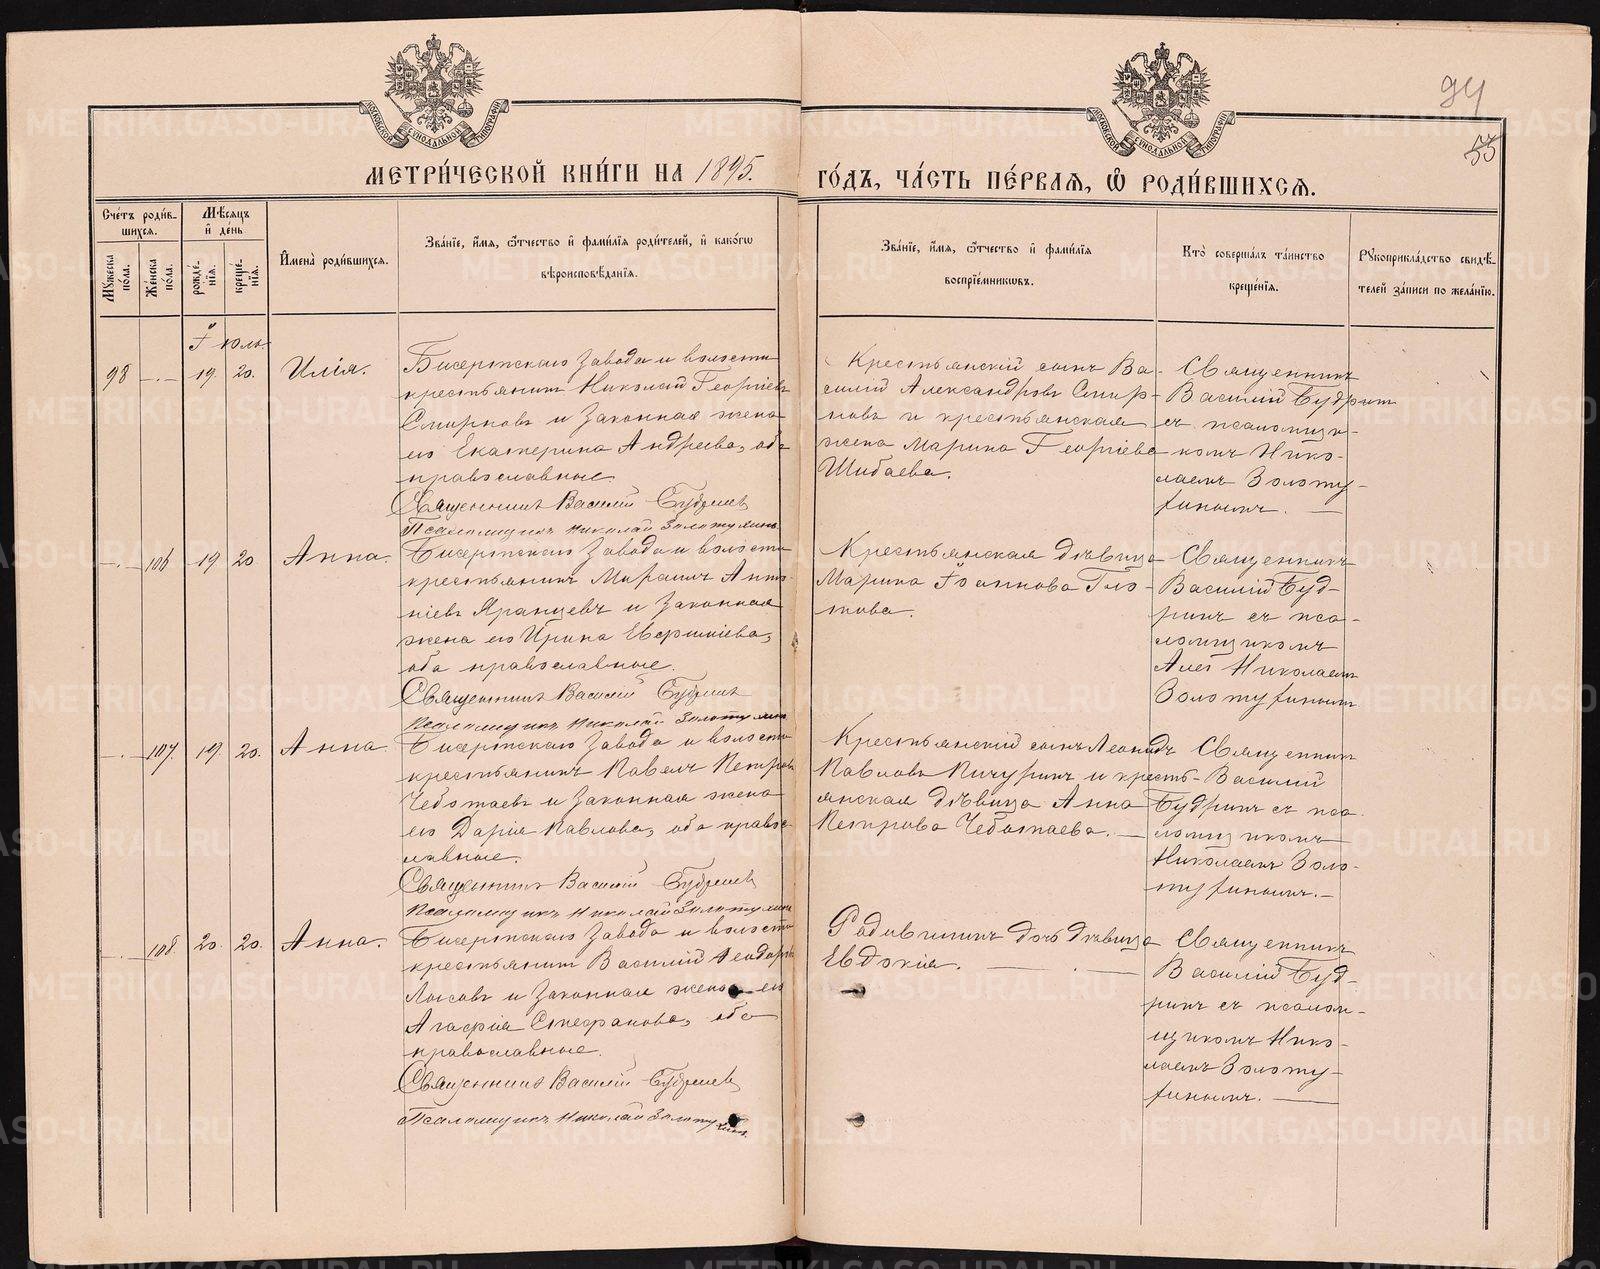 94
53
МОСКОВСКОЙ СѴНОДАЛЬНОЙ ТИПОГРАФІИ
МОСКОВСКОЙ СѴНОДАЛЬНОЙ ТИПОГРАФІИ
МЕТРИ́ЧЕСКОЙ КНИ́ГИ НА 1895. ГО́ДЪ, ЧА́СТЬ ПЕ́РВАЯ, Ѽ РОДИ́ВШИХСЯ.
Сче́тъ роди́в-
шихся.
Мѣ́сяцъ
и҆ де́нь
Мꙋ́жеска
по́ла.
Же́нска
по́ла.
рожде́-
нїѧ.
креще́-
нїѧ.
И҆мена̀ роди́вшихся.
Зва́нїе, и҆́мѧ, ѻ҆́тчество и҆ фами́лїѧ роди́телей, и҆ како́гѡ
вѣроисповѣ́данїѧ.
Зва́нїе, и҆́мѧ, ѻ҆́тчество и҆ фами́лїѧ
воспрїе́мникѡвъ.
Кто̀ соверша́лъ та́инство
креще́нїѧ.
Рꙋкоприкла́дство свидѣ́-
телей за́писи по жела́нїю.
Іюль.
98 —.— 19. 20. Илія.
Бисертскаго Завода и волости
крестьянинъ Николай Георгіевъ
Смирновъ и законная жена
его Екатерина Андреева, оба
православные.
Священникъ Василій Будринъ
Псаломщикъ Николай Золотухинъ.
Крестьянскій сынъ Ва-
силій Александровъ Смир-
новъ и крестьянская
жена Марина Георгіева
Шибаева.
Священникъ
Василій Будринъ
съ псаломщи-
комъ Нико-
лаемъ Золоту-
хинымъ. —
—.— 106 19 20 Анна.
Бисертскаго Завода и волости
крестьянинъ Анто-
ніевъ Яранцевъ и законная
жена его Ирина
оба православные.
Священникъ Василій Будринъ
Псаломщикъ Николай Золотухинъ
Крестьянская дѣвица
Марина Іоаннова Гло-
това.
Священникъ
Василій Буд-
ринъ съ пса-
ломщикомъ
Николаемъ
Золотухинымъ
—.— 107. 19. 20. Анна
Бисертскаго Завода и волости
крестьянинъ Павелъ Петровъ
Чеботаевъ и законная жена
его Дарія Павлова, оба правос-
лавные.
Священникъ Василій Будринъ
Псаломщикъ Николай Золотухинъ
Крестьянскій сынъ Леонидъ
Павловъ Пичугинъ и кресть-
янская дѣвица Анна
Петрова Чеботаева. —
Священникъ
Василій
Будринъ съ пса-
ломщикомъ
Николаемъ Золо-
тухинымъ. —
—.— 108. 20. 20. Анна.
Бисертскаго Завода и волости
крестьянинъ Василій Ѳеодоровъ
Лысовъ и законная жена его
Агафія Стефанова, оба
православные.
Священникъ Василій Будринъ
Псаломщикъ Николай Золотухинъ.
Родившихъ дочь дѣвица
Евдокія. —.—
Священникъ
Василій Буд-
ринъ съ псалом-
щикомъ Нико-
лаемъ Золоту-
хинымъ. —
METRIKI.GASO-URAL.RU